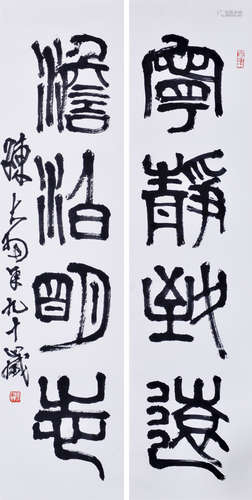 寧靜致遠
澹泊明志
陳大羽年九十歲